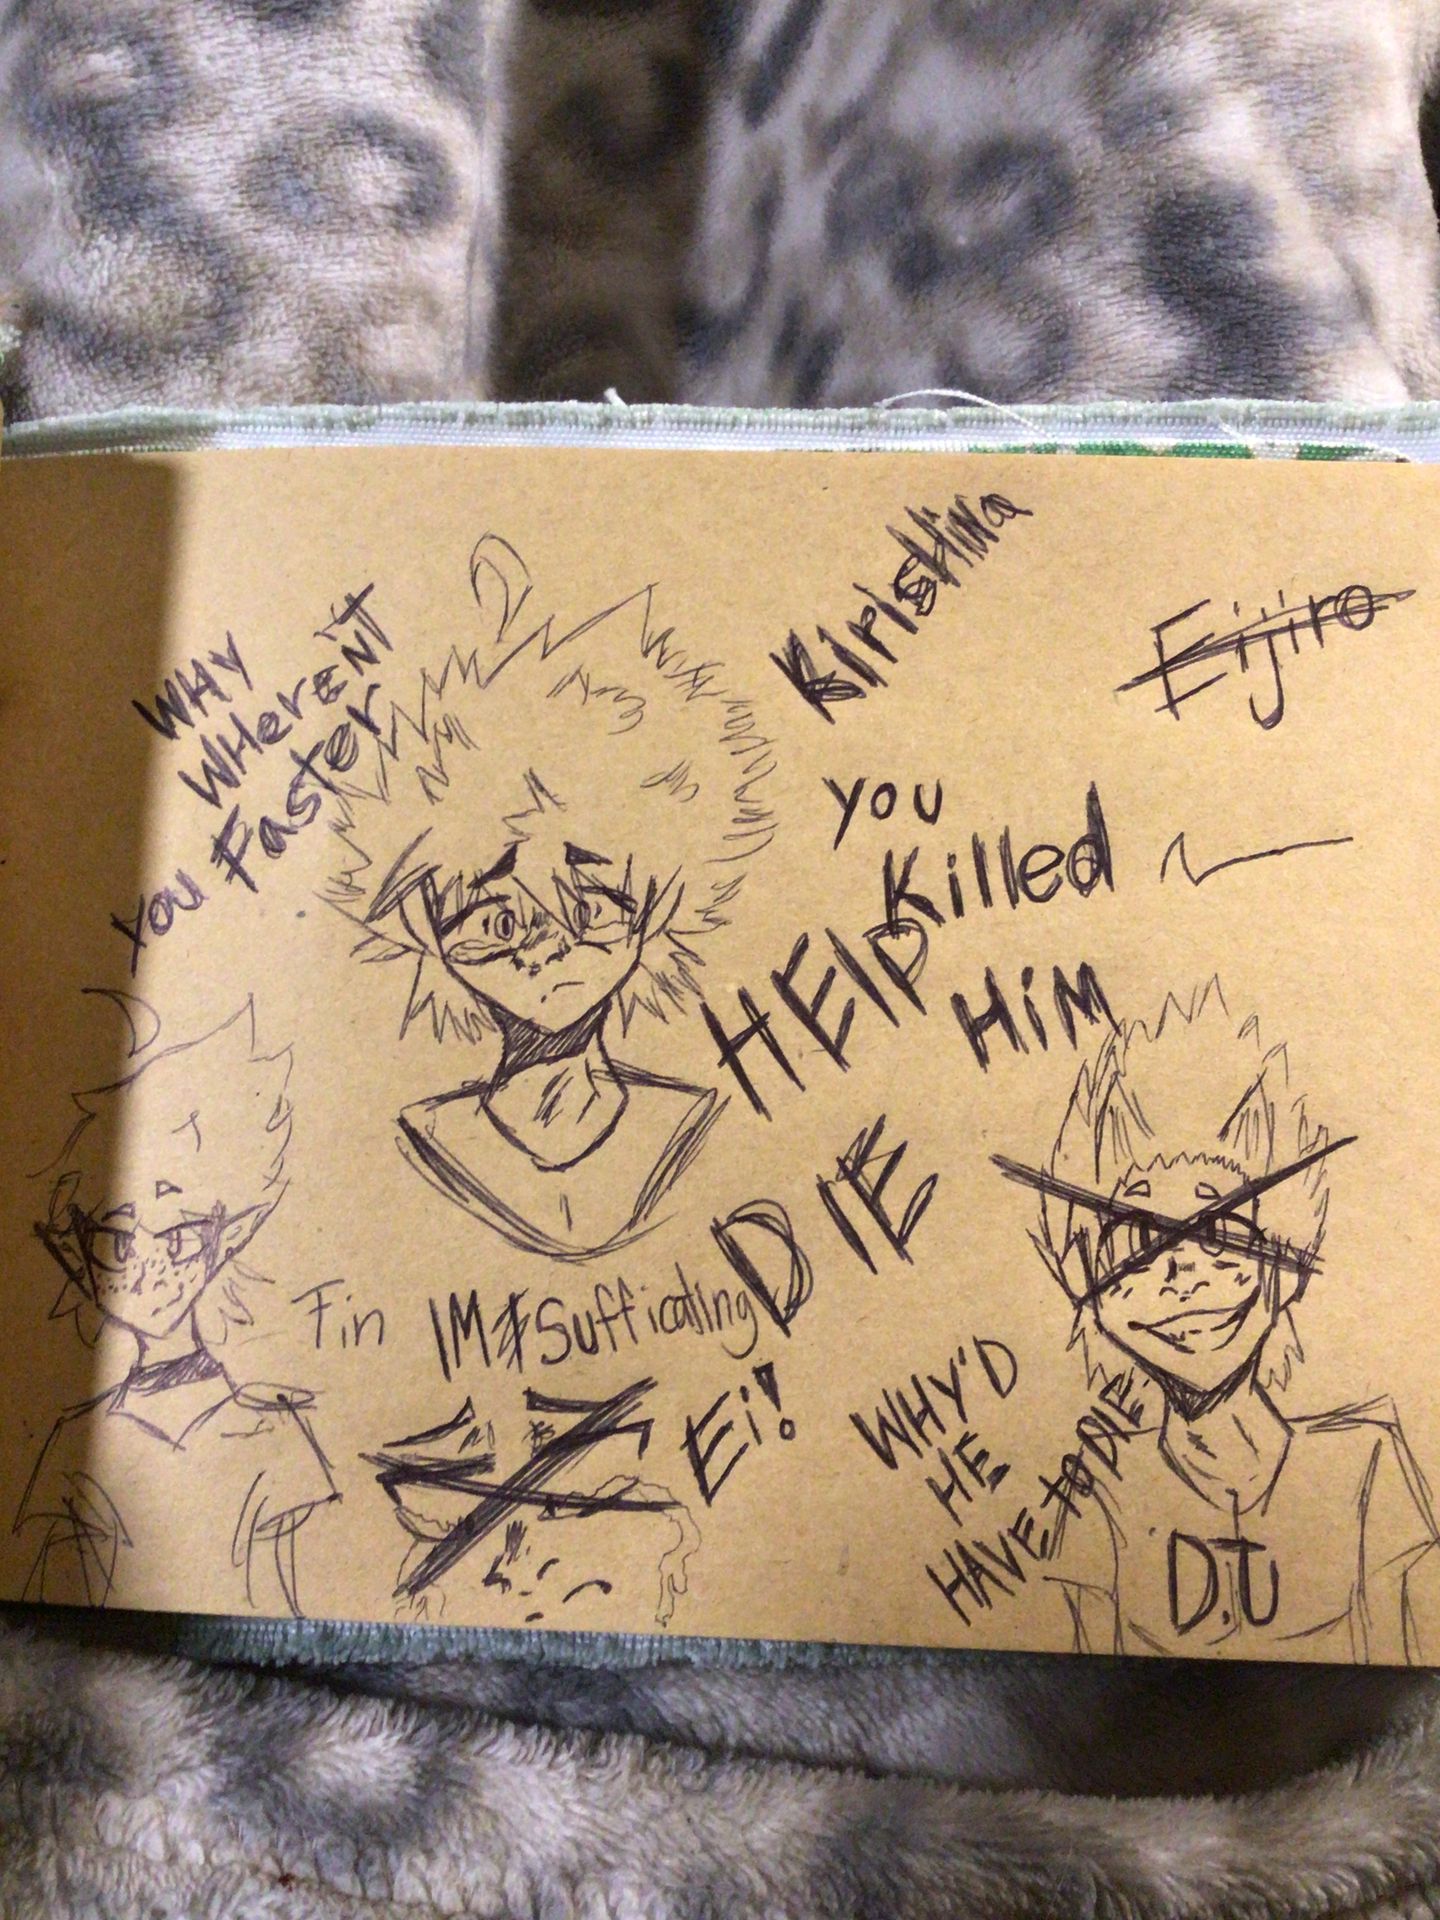 WHY
WHEreN'T
YOU Faster
KIrIsHINa
Eijiro
YOU
Killed
HIM
HElP
DIE
Fin
IM Sufficating
Ei!
WHY'D
HE
HAVE TO DIE
D.J